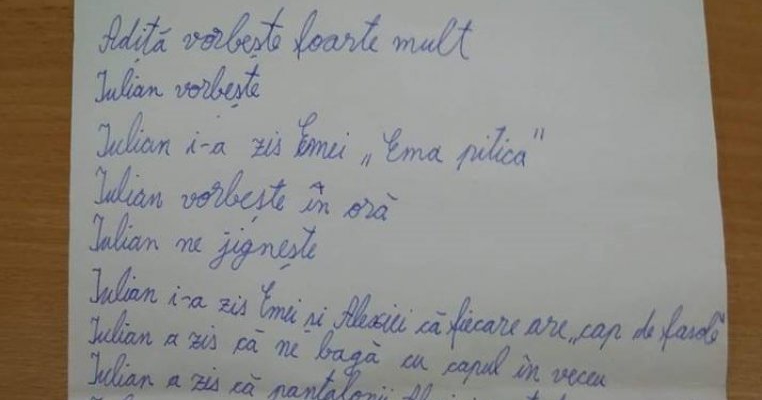 Adiță vorbește foarte mult
Iulian vorbește
Iulian i-a zis Emei „Ema pitica"
Iulian vorbește în oră
Iulian ne jignește
Iulian i-a zis Emei și Alexiei că fiecare are „cap de fasole"
Iulian a zis că ne bagă cu capul în veceu
Iulian a zis că pantalonii